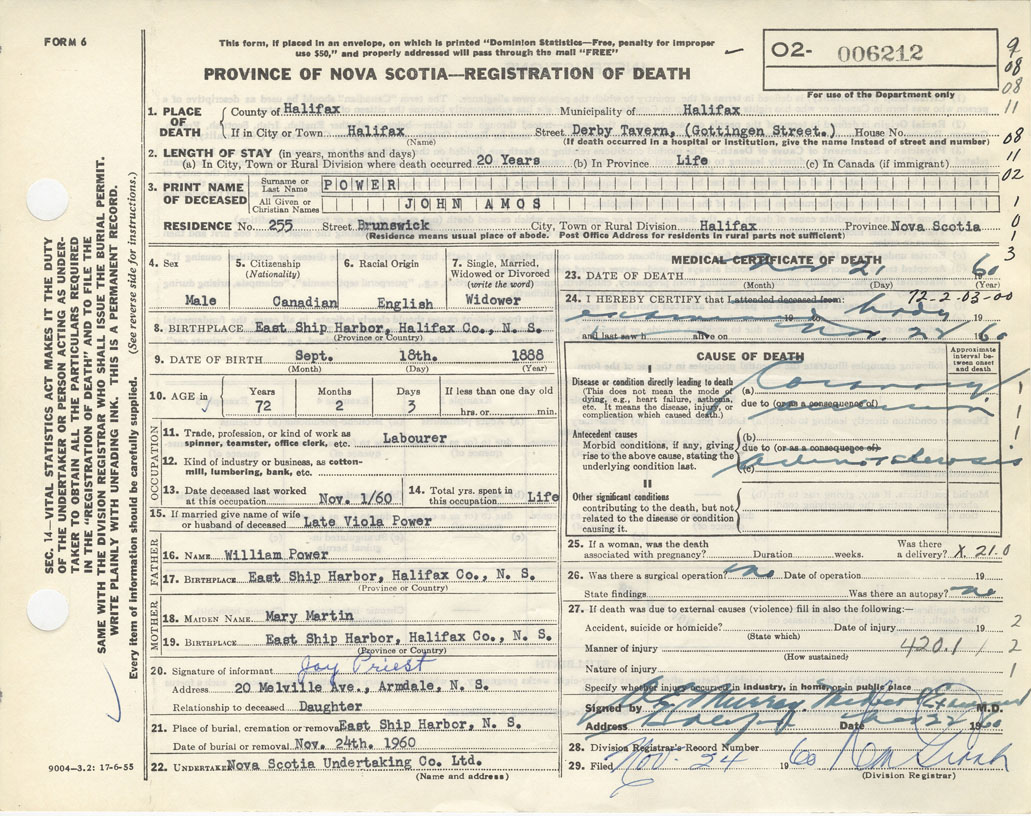 FORM 6
This form, if placed in an envelope, on which is printed "Dominion Statistics—Free, penalty for improper
use $50," and properly addressed will pass through the mail "FREE"
PROVINCE OF NOVA SCOTIA—REGISTRATION OF DEATH
02- 006212
For use of the Department only
9
08
08
11
08
11
02
1
0
1
3
SEC. 14—VITAL STATISTICS ACT MAKES IT THE DUTY
OF THE UNDERTAKER OR PERSON ACTING AS UNDER-
TAKER TO OBTAIN ALL THE PARTICULARS REQUIRED
IN THE "REGISTRATION OF DEATH" AND TO FILE THE
SAME WITH THE DIVISION REGISTRAR WHO SHALL ISSUE THE BURIAL PERMIT.
WRITE PLAINLY WITH UNFADING INK. THIS IS A PERMANENT RECORD.
Every item of information should be carefully supplied. (See reverse side for instructions.)
1. PLACE OF DEATH
County of Halifax Municipality of Halifax
If in City or Town Halifax Street Derby Tavern, (Gottingen Street.) House No.
(Name) (If death occurred in a hospital or institution, give the name instead of street and number)
2. LENGTH OF STAY (in years, months and days)
(a) In City, Town or Rural Division where death occurred 20 Years (b) In Province Life (c) In Canada (if immigrant)
3. PRINT NAME OF DECEASED
Surname or Last Name POWER
All Given or Christian Names JOHN AMOS
RESIDENCE No. 255 Street Brunswick City, Town or Rural Division Halifax Province Nova Scotia
(Residence means usual place of abode. Post Office Address for residents in rural parts not sufficient)
4. Sex
Male
5. Citizenship
(Nationality)
Canadian
6. Racial Origin
English
7. Single, Married,
Widowed or Divorced
(write the word)
Widower
8. BIRTHPLACE East Ship Harbor, Halifax Co., N. S.
(Province or Country)
9. DATE OF BIRTH Sept. 18th. 1888
(Month) (Day) (Year)
10. AGE in
Years Months Days If less than one day old
72 2 3 hrs. or min.
OCCUPATION
11. Trade, profession, or kind of work as
spinner, teamster, office clerk, etc. Labourer
12. Kind of industry or business, as cotton-
mill, lumbering, bank, etc.
13. Date deceased last worked
at this occupation Nov. 1/60
14. Total yrs. spent in
this occupation Life
15. If married give name of wife
or husband of deceased Late Viola Power
FATHER
16. NAME William Power
17. BIRTHPLACE East Ship Harbor, Halifax Co., N. S.
(Province or Country)
MOTHER
18. MAIDEN NAME Mary Martin
19. BIRTHPLACE East Ship Harbor, Halifax Co., N. S.
(Province or Country)
20. Signature of informant Joy Priest
Address 20 Melville Ave., Armdale, N. S.
Relationship to deceased Daughter
21. Place of burial, cremation or removal East Ship Harbor, N. S.
Date of burial or removal Nov. 24th. 1960
22. UNDERTAKER Nova Scotia Undertaking Co. Ltd.
(Name and address)
9004-3.2: 17-6-55
MEDICAL CERTIFICATE OF DEATH
23. DATE OF DEATH Nov 21 60
(Month) (Day) (Year)
24. I HEREBY CERTIFY that I attended deceased from: 72-2-03-00
examined body 19
and last saw h alive on Nov. 22 1960
CAUSE OF DEATH
Approximate
interval be-
tween onset
and death
I
Disease or condition directly leading to death
(This does not mean the mode of
dying, e.g., heart failure, asthenia,
etc. It means the disease, injury, or
complication which caused death.)
(a) Coronary
due to (or as a consequence of)
Antecedent causes
Morbid conditions, if any, giving
rise to the above cause, stating the
underlying condition last.
(b)
due to (or as a consequence of)
(c)
II
Other significant conditions
contributing to the death, but not
related to the disease or condition
causing it.
25. If a woman, was the death
associated with pregnancy? Duration weeks.
Was there
a delivery? X 21.0
26. Was there a surgical operation? no Date of operation 19
State findings Was there an autopsy? no
27. If death was due to external causes (violence) fill in also the following:—
Accident, suicide or homicide? Date of injury 19
(State which)
Manner of injury 420.1
(How sustained)
Nature of injury
Specify whether injury occurred in industry, in home, or in public place
Signed by Murray M.D.
Address Halifax Date Nov 22 1960
28. Division Registrar's Record Number
29. Filed Nov. 24 1960
(Division Registrar)
1
1
1
1
2
2
1